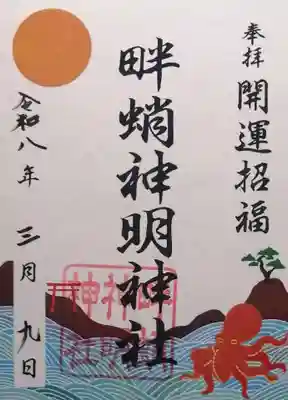 奉拝
開運招福
畔蛸神明神社
令和八年
三月
九日